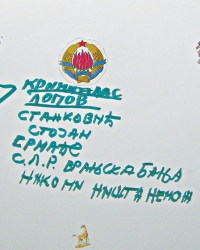 КРИМИНАЛАС
ЛОПОВ
СТАНКОВИЋ
СТОЈАН
ЕРНАЂЕ
С.Л.Р. ВРАЊСКА БАЊА
НИКО МИ НИШТА НЕМОЖЕ